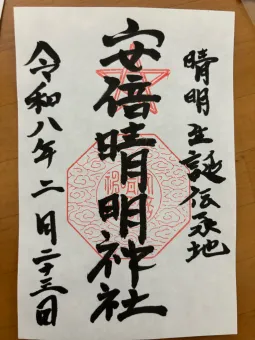 晴明公誕生伝承地
安倍晴明神社
令和八年二月二十三日